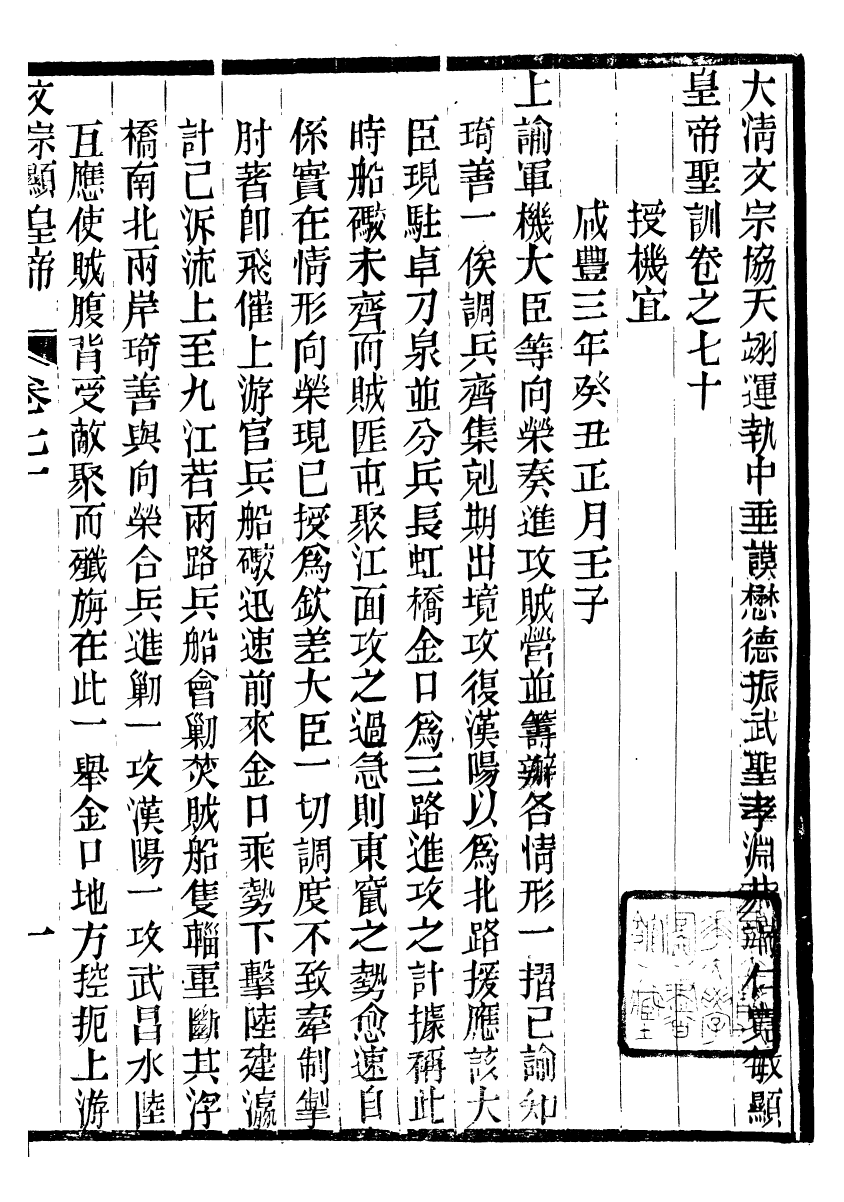 大清文宗協天翊運執中垂謨懋德振武聖孝淵恭端仁寬敏顯
皇帝聖訓卷之七十
授機宜
咸豐三年癸丑正月壬子
上諭軍機大臣等向榮奏進攻賊營並籌辦各情形一摺已諭知
琦善一俟調兵齊集剋期出境攻復漢陽以爲北路援應該大
臣現駐卓刀泉並分兵長虹橋金口爲三路進攻之計據稱此
時船礮未齊而賊匪屯聚江面攻之過急則東竄之勢愈速自
係實在情形向榮現已授爲欽差大臣一切調度不致牽制掣
肘著卽飛催上游官兵船礮迅速前來金口乘勢下擊陸建瀛
計已泝流上至九江若兩路兵船會勦焚賊船隻輜重斷其浮
橋南北兩岸琦善與向榮合兵進勦一攻漢陽一攻武昌水陸
互應使賊腹背受敵聚而殲旃在此一舉金口地方控扼上游
文宗顯皇帝 卷七十 一